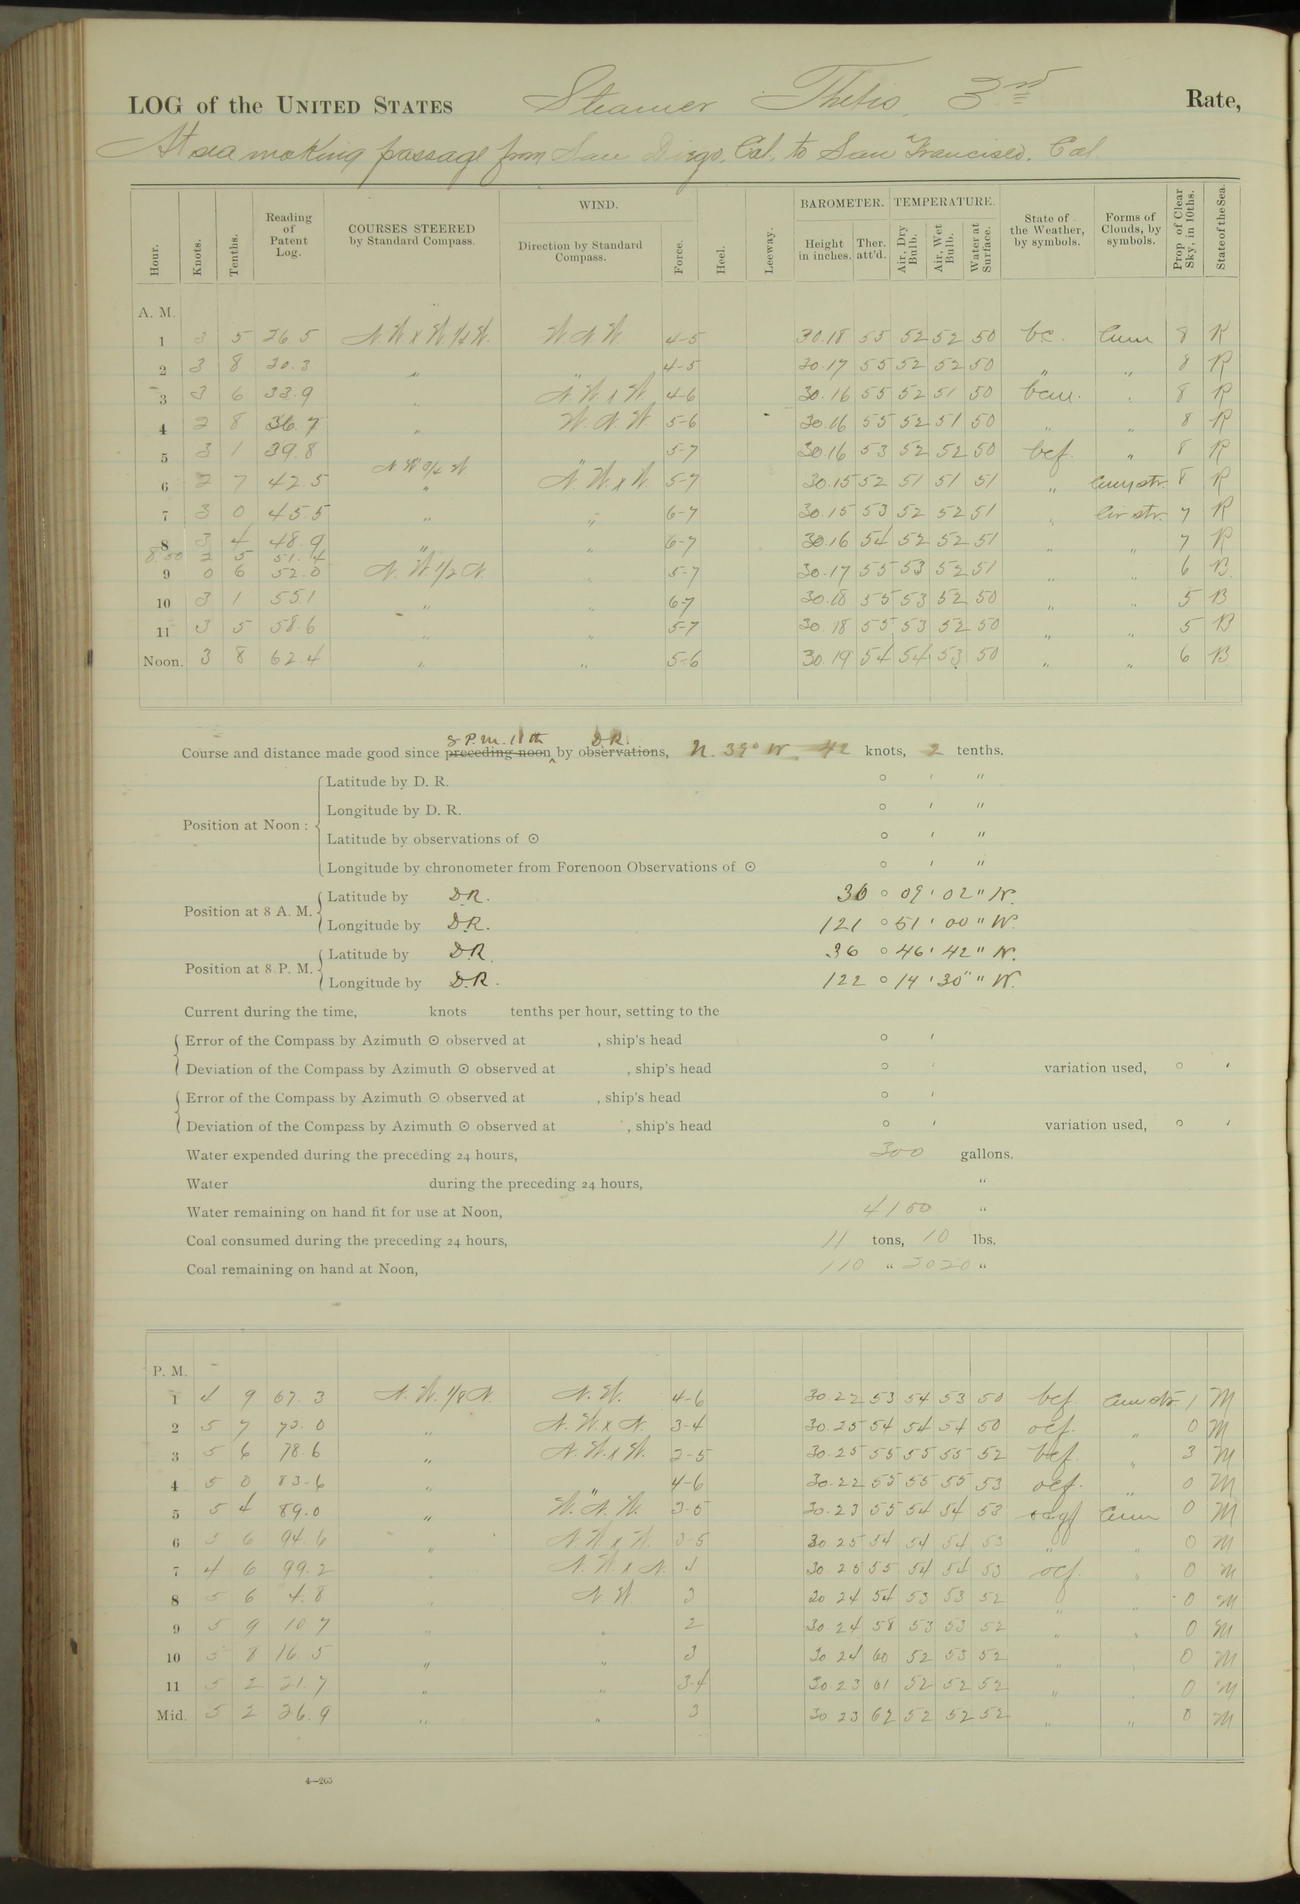 LOG of the UNITED STATES Steamer Thetis, 3rd Rate,
At sea making passage from San Diego, Cal. to San Francisco. Cal.
WIND. BAROMETER. TEMPERATURE.
Hour. Knots. Tenths. Reading of Patent Log. COURSES STEERED by Standard Compass. Direction by Standard Compass. Force. Heel. Leeway. Height in inches. Ther. att'd. Air, Dry Bulb. Air, Wet Bulb. Water at Surface. State of the Weather, by symbols. Forms of Clouds, by symbols. Prop of Clear Sky, in 10ths. State of the Sea.
A. M.
1 3 5 26.5 N.W x W 1/2 W. W.N.W. 4-5 30.18 55 52 52 50 bc. Cum 8 R
2 3 8 30.3 " " 4-5 30.17 55 52 52 50 " " 8 R
3 3 6 33.9 " N.W x W. 4-6 30.16 55 52 51 50 bcm. " 8 R
4 2 8 36.7 " W.N.W. 5-6 30.16 55 52 51 50 " " 8 R
5 3 1 39.8 " 5-7 30.16 53 52 52 50 bcf. " 8 R
N.W 3/4 W
6 2 7 42.5 " N.W x W. 5-7 30.15 52 51 51 51 " Cum str. 8 R
7 3 0 45.5 " " 6-7 30.15 53 52 52 51 " Cir str. 7 R
8 3 4 48.9 " " 6-7 30.16 54 52 52 51 " " 7 R
8.50 2 5 51.4
9 0 6 52.0 N.W 1/2 N. " 5-7 30.17 55 53 52 51 " " 6 B
10 3 1 55.1 " " 6-7 30.18 55 53 52 50 " " 5 B
11 3 5 58.6 " " 5-7 30.18 55 53 52 50 " " 5 B
Noon. 3 8 62.4 " " 5-6 30.19 54 54 53 50 " " 6 B
8 P.M. 11th D.R.
Course and distance made good since preceding noon by observations, N. 39° W. 42 knots, 2 tenths.
Latitude by D. R. ° ' "
Longitude by D. R. ° ' "
Position at Noon :
Latitude by observations of ⊙ ° ' "
Longitude by chronometer from Forenoon Observations of ⊙ ° ' "
Latitude by D.R. 36 ° 09 ' 02 " N.
Position at 8 A. M.
Longitude by D.R. 121 ° 51 ' 00 " W.
Latitude by D.R. 36 ° 46 ' 42 " N.
Position at 8 P. M.
Longitude by D.R. 122 ° 14 ' 30 " W.
Current during the time, knots tenths per hour, setting to the
Error of the Compass by Azimuth ⊙ observed at , ship's head ° '
Deviation of the Compass by Azimuth ⊙ observed at , ship's head ° ' variation used, ° '
Error of the Compass by Azimuth ⊙ observed at , ship's head ° '
Deviation of the Compass by Azimuth ⊙ observed at , ship's head ° ' variation used, ° '
Water expended during the preceding 24 hours, 300 gallons.
Water during the preceding 24 hours, "
Water remaining on hand fit for use at Noon, 4100 "
Coal consumed during the preceding 24 hours, 11 tons, 10 lbs.
Coal remaining on hand at Noon, 110 " 2020 "
P. M.
1 4 9 67.3 N.W. 1/8 N. N.W. 4-6 30.22 53 54 53 50 bcf. Cum str 1 M
2 5 7 73.0 " N.W. x N. 3-4 30.25 54 54 54 50 ocf. " 0 M
3 5 6 78.6 " N.W. x W. 2-5 30.25 55 55 55 52 bcf. " 3 M
4 5 0 83.6 " " 4-6 30.22 55 55 55 53 ocf. " 0 M
5 5 4 89.0 " W.N.W. 3-5 30.23 55 54 54 53 Cum 0 M
6 5 6 94.6 " N.W x W. 3-5 30.25 54 54 54 53 " " 0 M
7 4 6 99.2 " N.W x N. 4 30 25 55 54 54 53 ocf. " 0 M
8 5 6 4.8 " N.W. 3 30 24 54 53 53 52 " " 0 M
9 5 9 10 7 " " 2 30.24 58 53 53 52 " " 0 M
10 5 8 16.5 " " 3 30 24 60 52 53 52 " " 0 M
11 5 2 21.7 " " 3-4 30 23 61 52 52 52 " " 0 M
Mid. 5 2 26.9 " " 3 30 23 62 52 52 52 " " 0 M
4—265